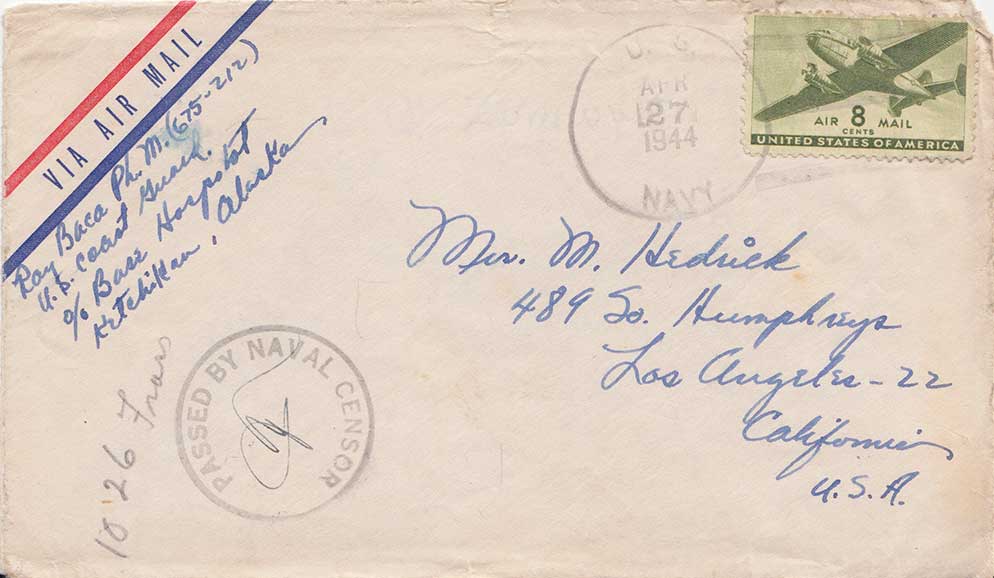 VIA AIR MAIL
Ray Baca Ph. M. (675-212)
U.S. Coast Guard.
c/o Base Hospital
Ketchikan, Alaska
U. S.
APR
27
1944
NAVY
AIR 8 MAIL
CENTS
UNITED STATES OF AMERICA
Mrs. M. Hedrick
489 So. Humphreys
Los Angeles-22
California
U.S.A.
PASSED BY NAVAL CENSOR
26